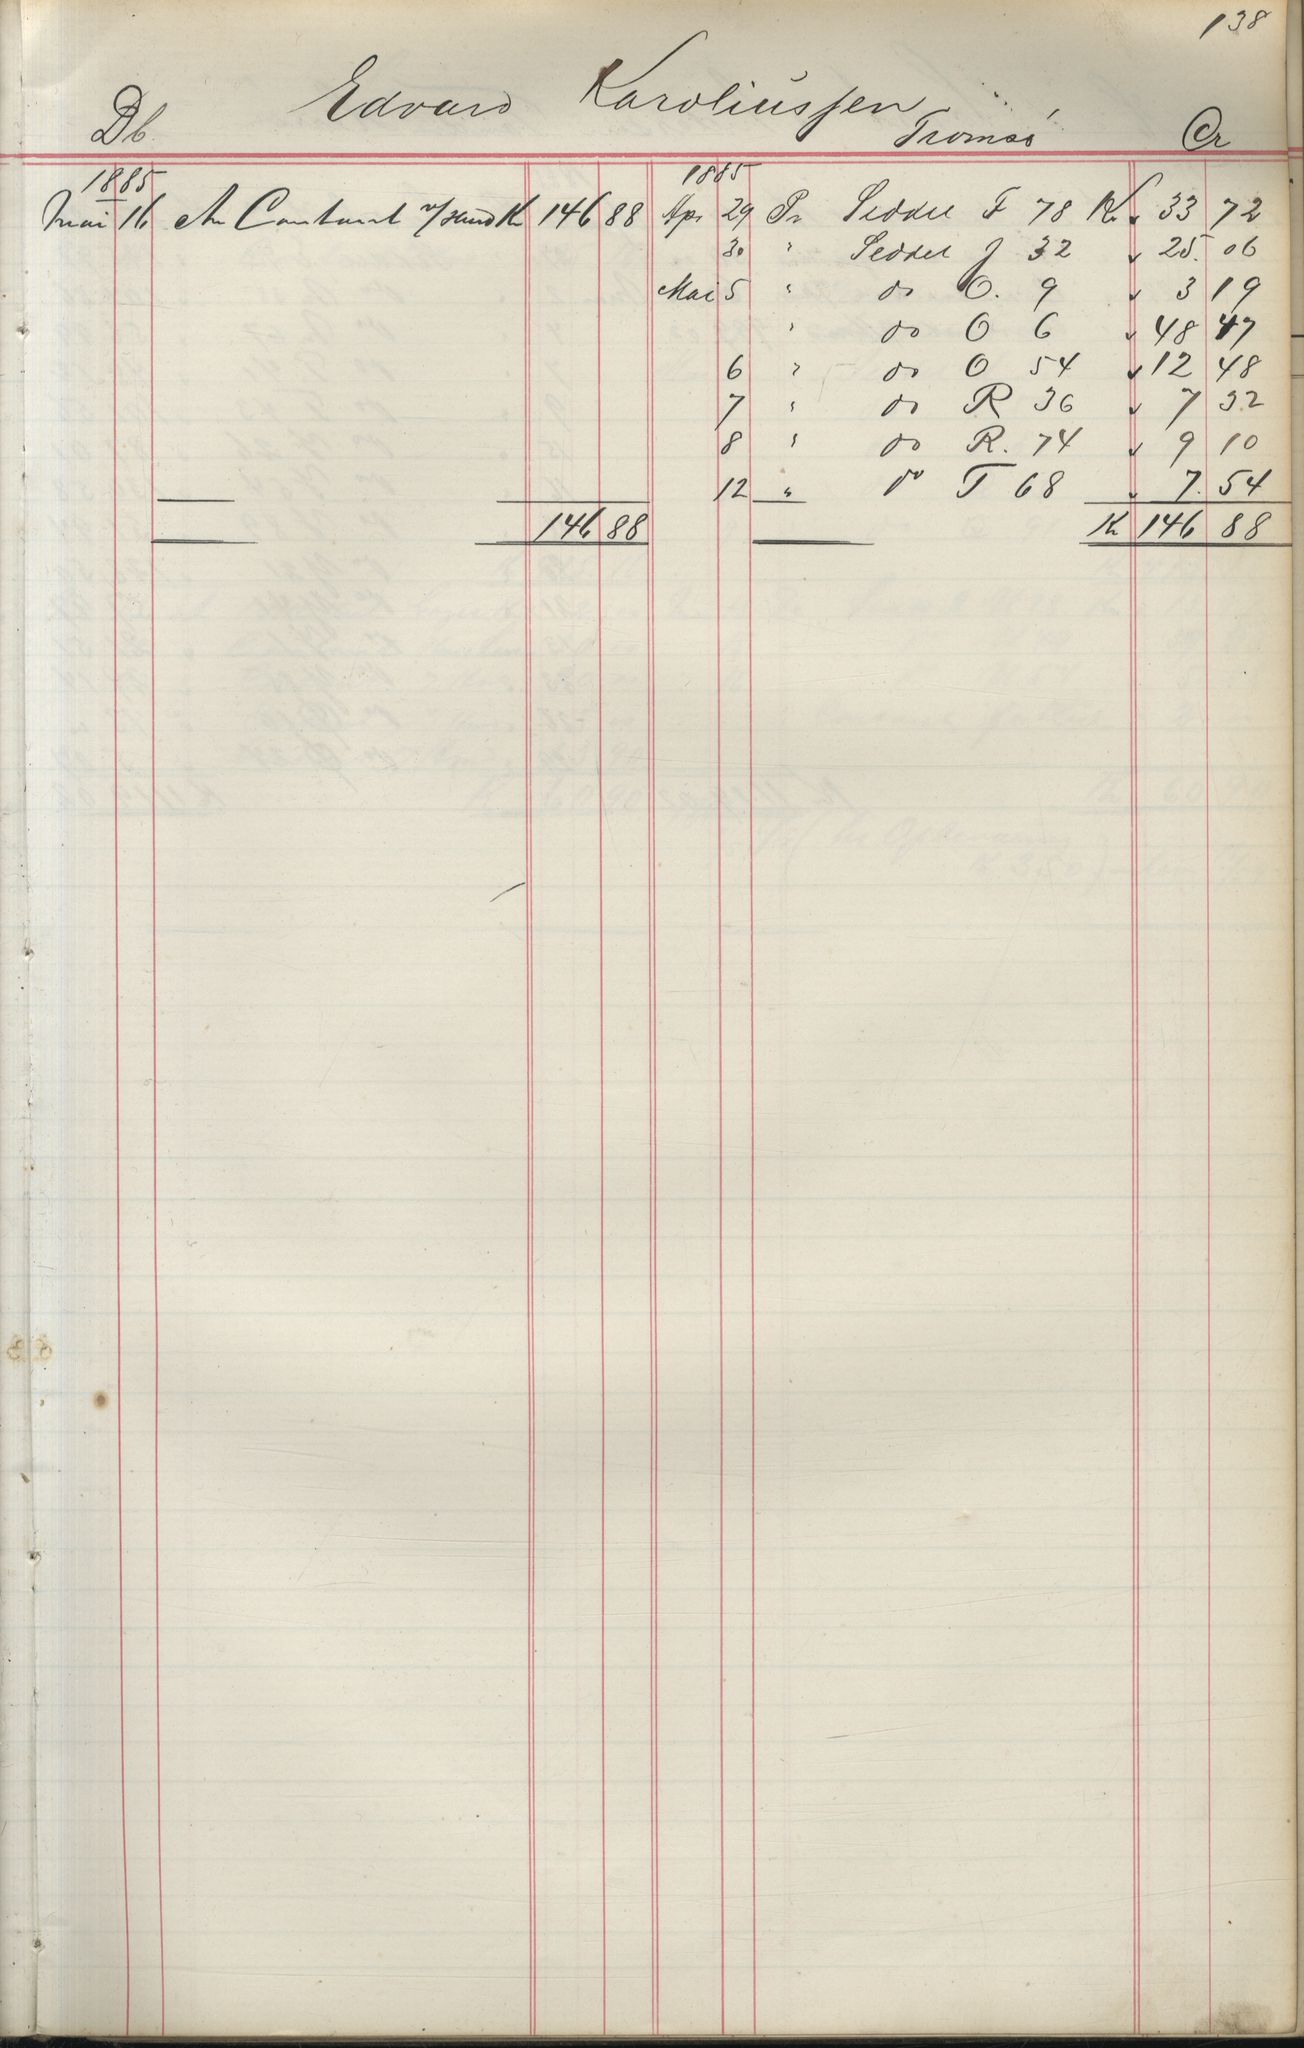 138
Edvard Karoliussen
Db. Tromsø Cr
1885 1885
Mai 16 An Contant Kr 146 88 Apr 29 Pr Seddel F 78 Kr 33 72
30 " Seddel J 32 25. 06
Mai 5 " do O. 9 3 19
" do O 6 48 47
6 " do O 54 12 48
7 " do R 36 7 32
8 " do R. 74 9 10
12 " do T 68 7. 54
146 88 Kr 146 88